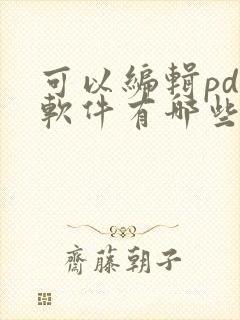 可以編輯pd
軟件有哪些
齋藤朝子